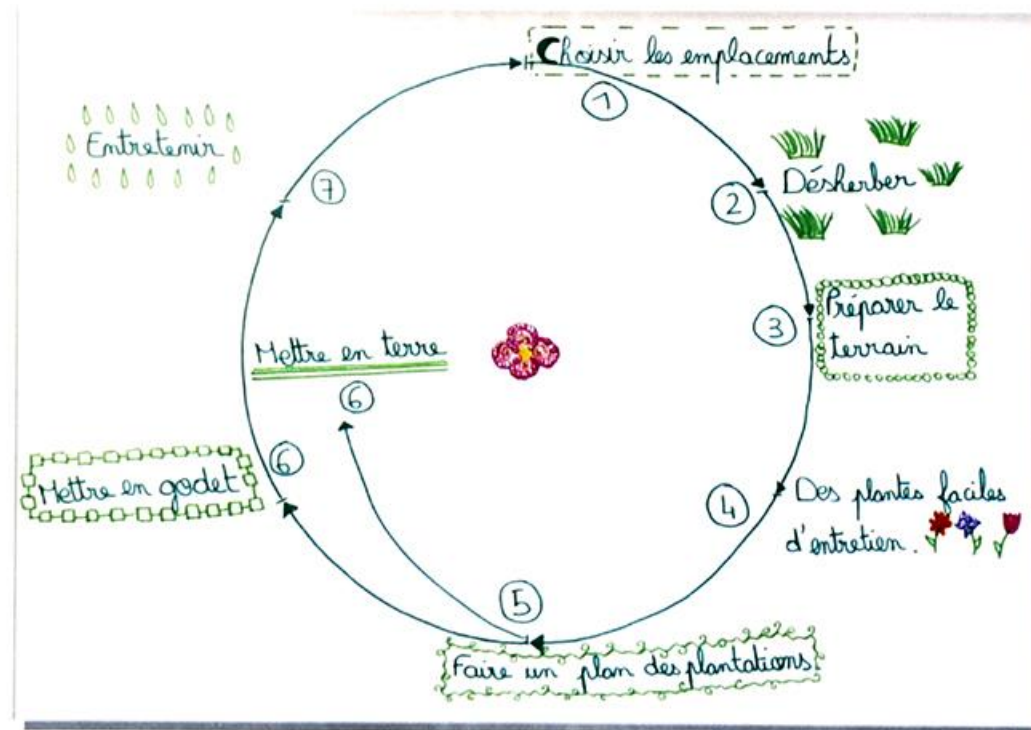 Choisir les emplacements
1
2
Désherber
3
Préparer le
terrain
4
Des plantes faciles
d'entretien.
5
Faire un plan des plantations.
6
Mettre en godet
Mettre en terre
6
7
Entretenir